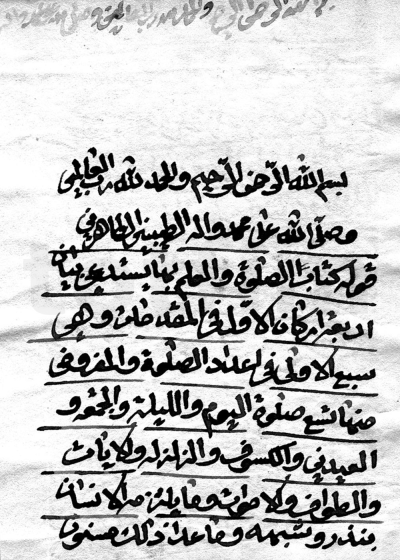 بسم الله الرحمن الرحيم والحمد لله رب العالمين
وصلى الله على محمد واله الطيبين الطاهرين
قوله كتاب الصلوة والعلم بها يستدعي بيان
اربعة اركان الاول في المقدمات وهي
سبع الاولى في اعداد الصلوة والمفروض
منها تسع صلوة اليوم والليلة والجمعة و
العيدين والكسوف والزلزلة والايات
والطواف والاموات وما يلتزمه الانسان
بنذر وشبهه وما عدا ذلك مسنون